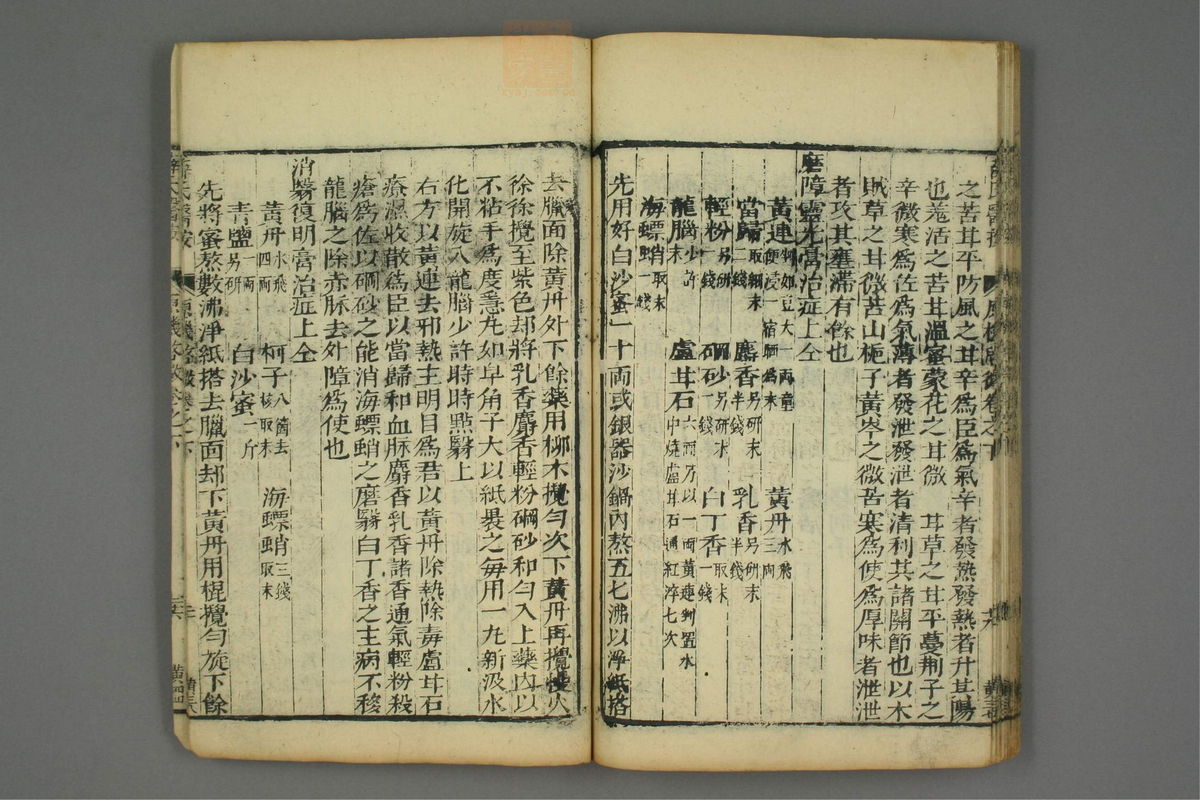 之苦甘平防風之甘辛爲臣爲氣辛者發熱發熱者升其陽
也羗活之苦甘溫蜜蒙花之甘微 甘草之甘平蔓荆子之
辛微寒爲佐爲氣薄者發泄發泄者清利其諸關節也以木
賊草之甘微苦山梔子黃芩之微苦寒爲使爲厚味者泄泄
者攻其壅滯有餘也
磨障靈光膏治症上仝
黃連剉如豆大一両童便浸一宿晒爲末 黃丹水飛三両
當歸取細末二錢 麝香另研末半錢 乳香另研末半錢
輕粉另研一錢 硇砂另研末一錢 白丁香取末一錢
龍腦少許末 盧甘石六両乃以一両黃連剉置水中燒盧甘石通紅淬七次
海螵蛸取末一錢
先用好白沙蜜一十両或銀器沙鍋內熬五七沸以凈紙搭
去臘面除黃丹外下餘藥用柳木攪勻次下黃丹再攪慢火
徐徐攪至紫色却將乳香麝香輕粉硇砂和勻入上藥內以
不粘手爲度急丸如皁角子大以紙褁之每用一丸新汲水
化開旋入龍腦少許時時點翳上
右方以黃連去邪熱主明目爲君以黃丹除熱除毒盧甘石
療濕收散爲臣以當歸和血脉麝香乳香諸香通氣輕粉殺
瘡爲佐以硇砂之能消海螵蛸之磨翳白丁香之主病不移
龍腦之除赤脉去外障爲使也
消翳復明膏治症上仝
黃丹水飛四両 柯子八箇去核取末 海螵蛸三錢取末
青鹽一両另研 白沙蜜一斤
先將蜜熬數沸淨紙搭去臘面却下黃丹用棍攪勻旋下餘